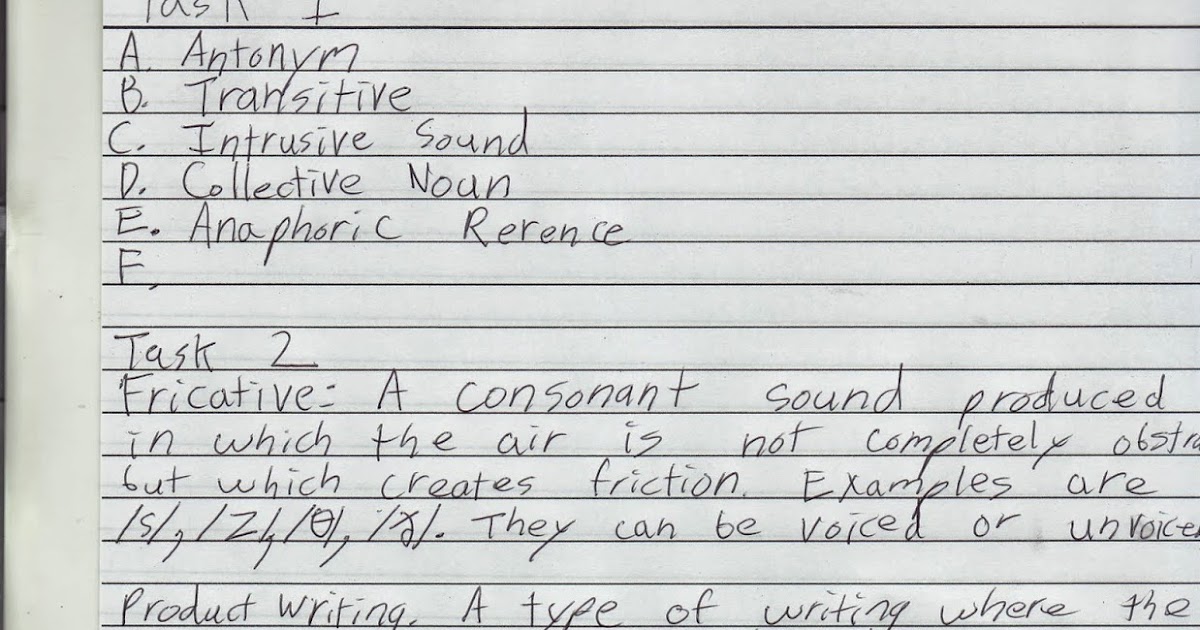 Task 1
A. Antonym
B. Transitive
C. Intrusive Sound
D. Collective Noun
E. Anaphoric Rerence
F.
Task 2
Fricative: A consonant sound produced
in which the air is not completely obstr
but which creates friction. Examples are
/s/, /z/, /θ/, /ʒ/. They can be voiced or unvoice
Product Writing. A type of writing where the